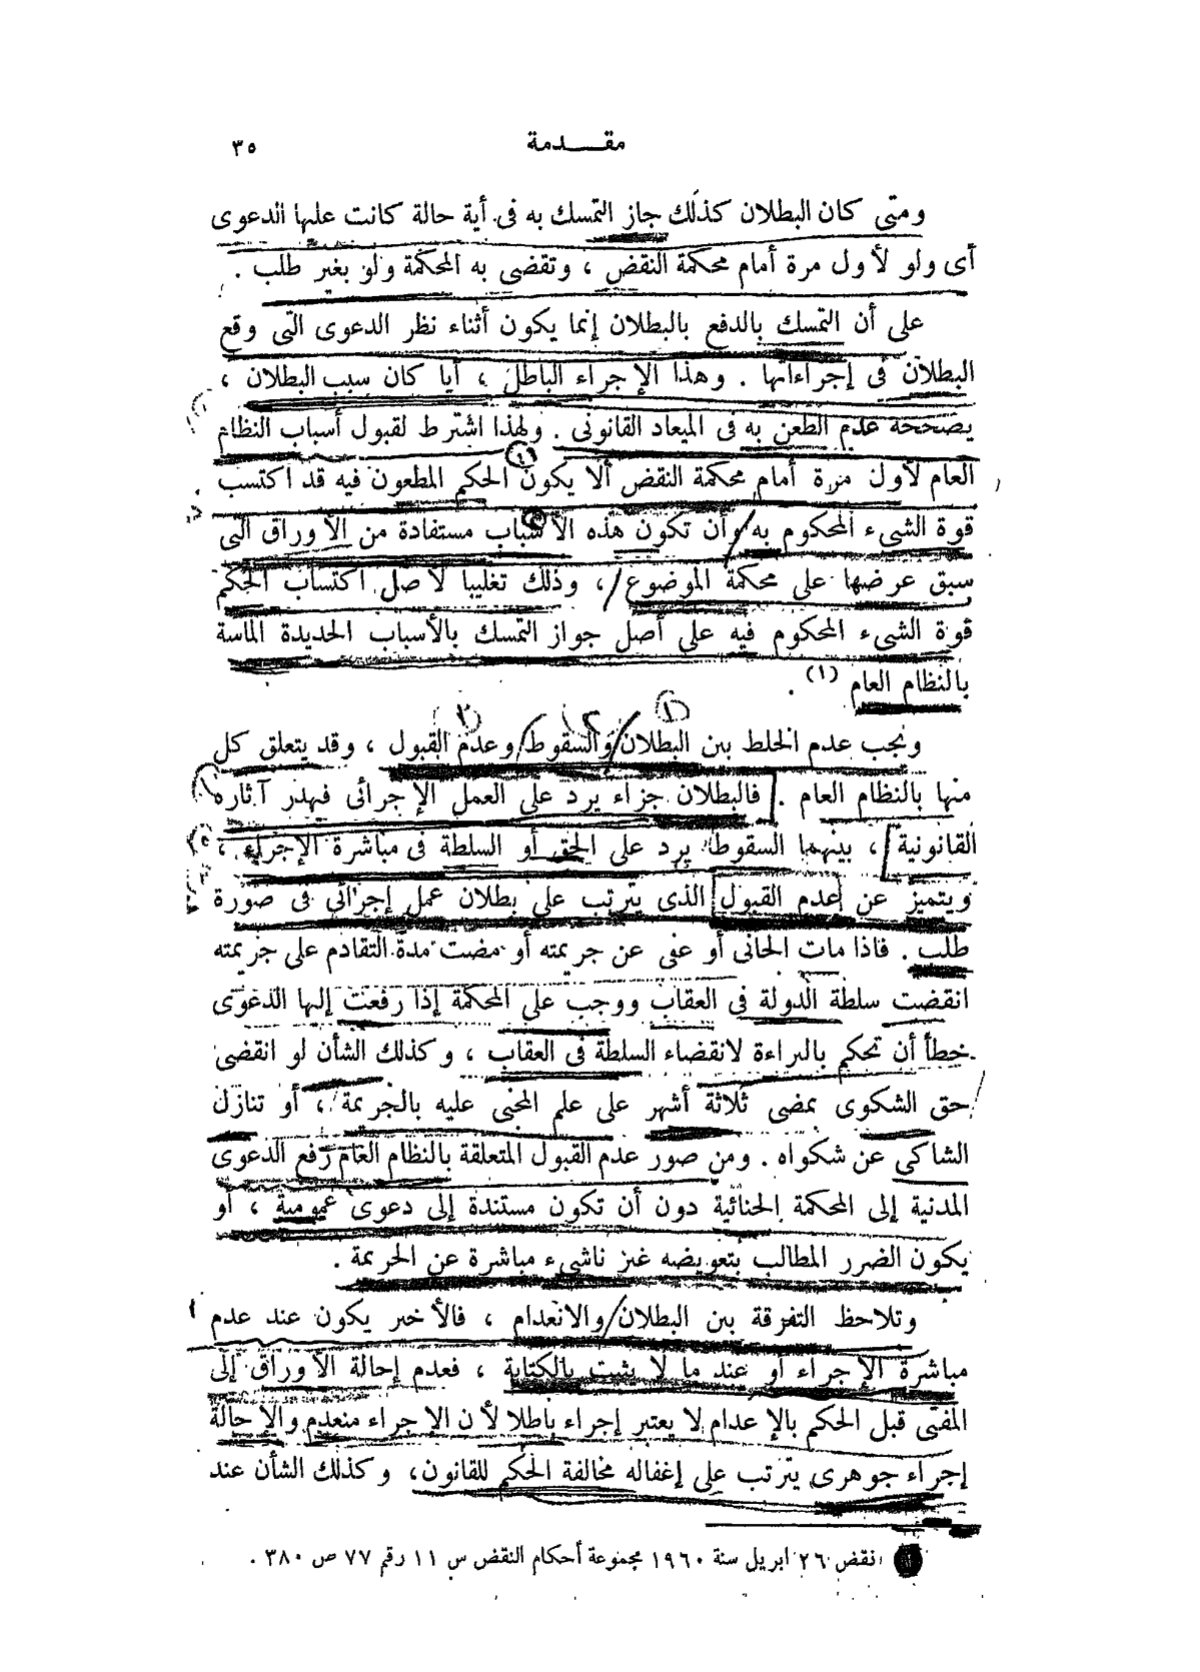 مقــدمة ٣٥
ومتى كان البطلان كذلك جاز التمسك به فى أية حالة كانت عليها الدعوى
أى ولو لأول مرة أمام محكمة النقض ، وتقضى به المحكمة ولو بغير طلب .
على أن التمسك بالدفع بالبطلان إنما يكون أثناء نظر الدعوى التى وقع
البطلان فى إجراءاتها . وهذا الإجراء الباطل ، أيا كان سبب البطلان ،
يصححه عدم الطعن به فى الميعاد القانونى . ولهذا اشترط لقبول أسباب النظام
العام لأول مرة أمام محكمة النقض ألا يكون الحكم المطعون فيه قد اكتسب
قوة الشىء المحكوم به وأن تكون هذه الأسباب مستفادة من الأوراق التى
سبق عرضها على محكمة الموضوع ، وذلك تغليبا لأصل اكتساب الحكم
قوة الشىء المحكوم فيه على أصل جواز التمسك بالأسباب الجديدة الماسة
بالنظام العام (١) .
ويجب عدم الخلط بين البطلان والسقوط وعدم القبول ، وقد يتعلق كل
منها بالنظام العام . فالبطلان جزاء يرد على العمل الإجرائى فيهدر آثاره
القانونية ، بينما السقوط يرد على الحق أو السلطة فى مباشرة الإجراء ،
ويتميز عن عدم القبول الذى يترتب على بطلان عمل إجرائى فى صورة
طلب . فاذا مات الجانى أو عفى عن جريمته أو مضت مدة التقادم على جريمته
انقضت سلطة الدولة فى العقاب ووجب على المحكمة إذا رفعت إليها الدعوى
خطأ أن تحكم بالبراءة لانقضاء السلطة فى العقاب ، وكذلك الشأن لو انقضى
حق الشكوى بمضى ثلاثة أشهر على علم المجنى عليه بالجريمة ، أو تنازل
الشاكى عن شكواه . ومن صور عدم القبول المتعلقة بالنظام العام رفع الدعوى
المدنية إلى المحكمة الجنائية دون أن تكون مستندة إلى دعوى عمومية ، أو
يكون الضرر المطالب بتعويضه غير ناشىء مباشرة عن الجريمة .
وتلاحظ التفرقة بين البطلان والانعدام ، فالأخير يكون عند عدم
مباشرة الإجراء أو عند ما لا يثبت بالكتابة ، فعدم إحالة الأوراق إلى
المفتى قبل الحكم بالإعدام لا يعتبر إجراء باطلا لأن الإجراء منعدم والإحالة
إجراء جوهرى يترتب على إغفاله مخالفة الحكم للقانون، وكذلك الشأن عند
نقض ٢٦ ابريل سنة ١٩٦٠ مجموعة أحكام النقض س ١١ رقم ٧٧ ص ٣٨٠ .